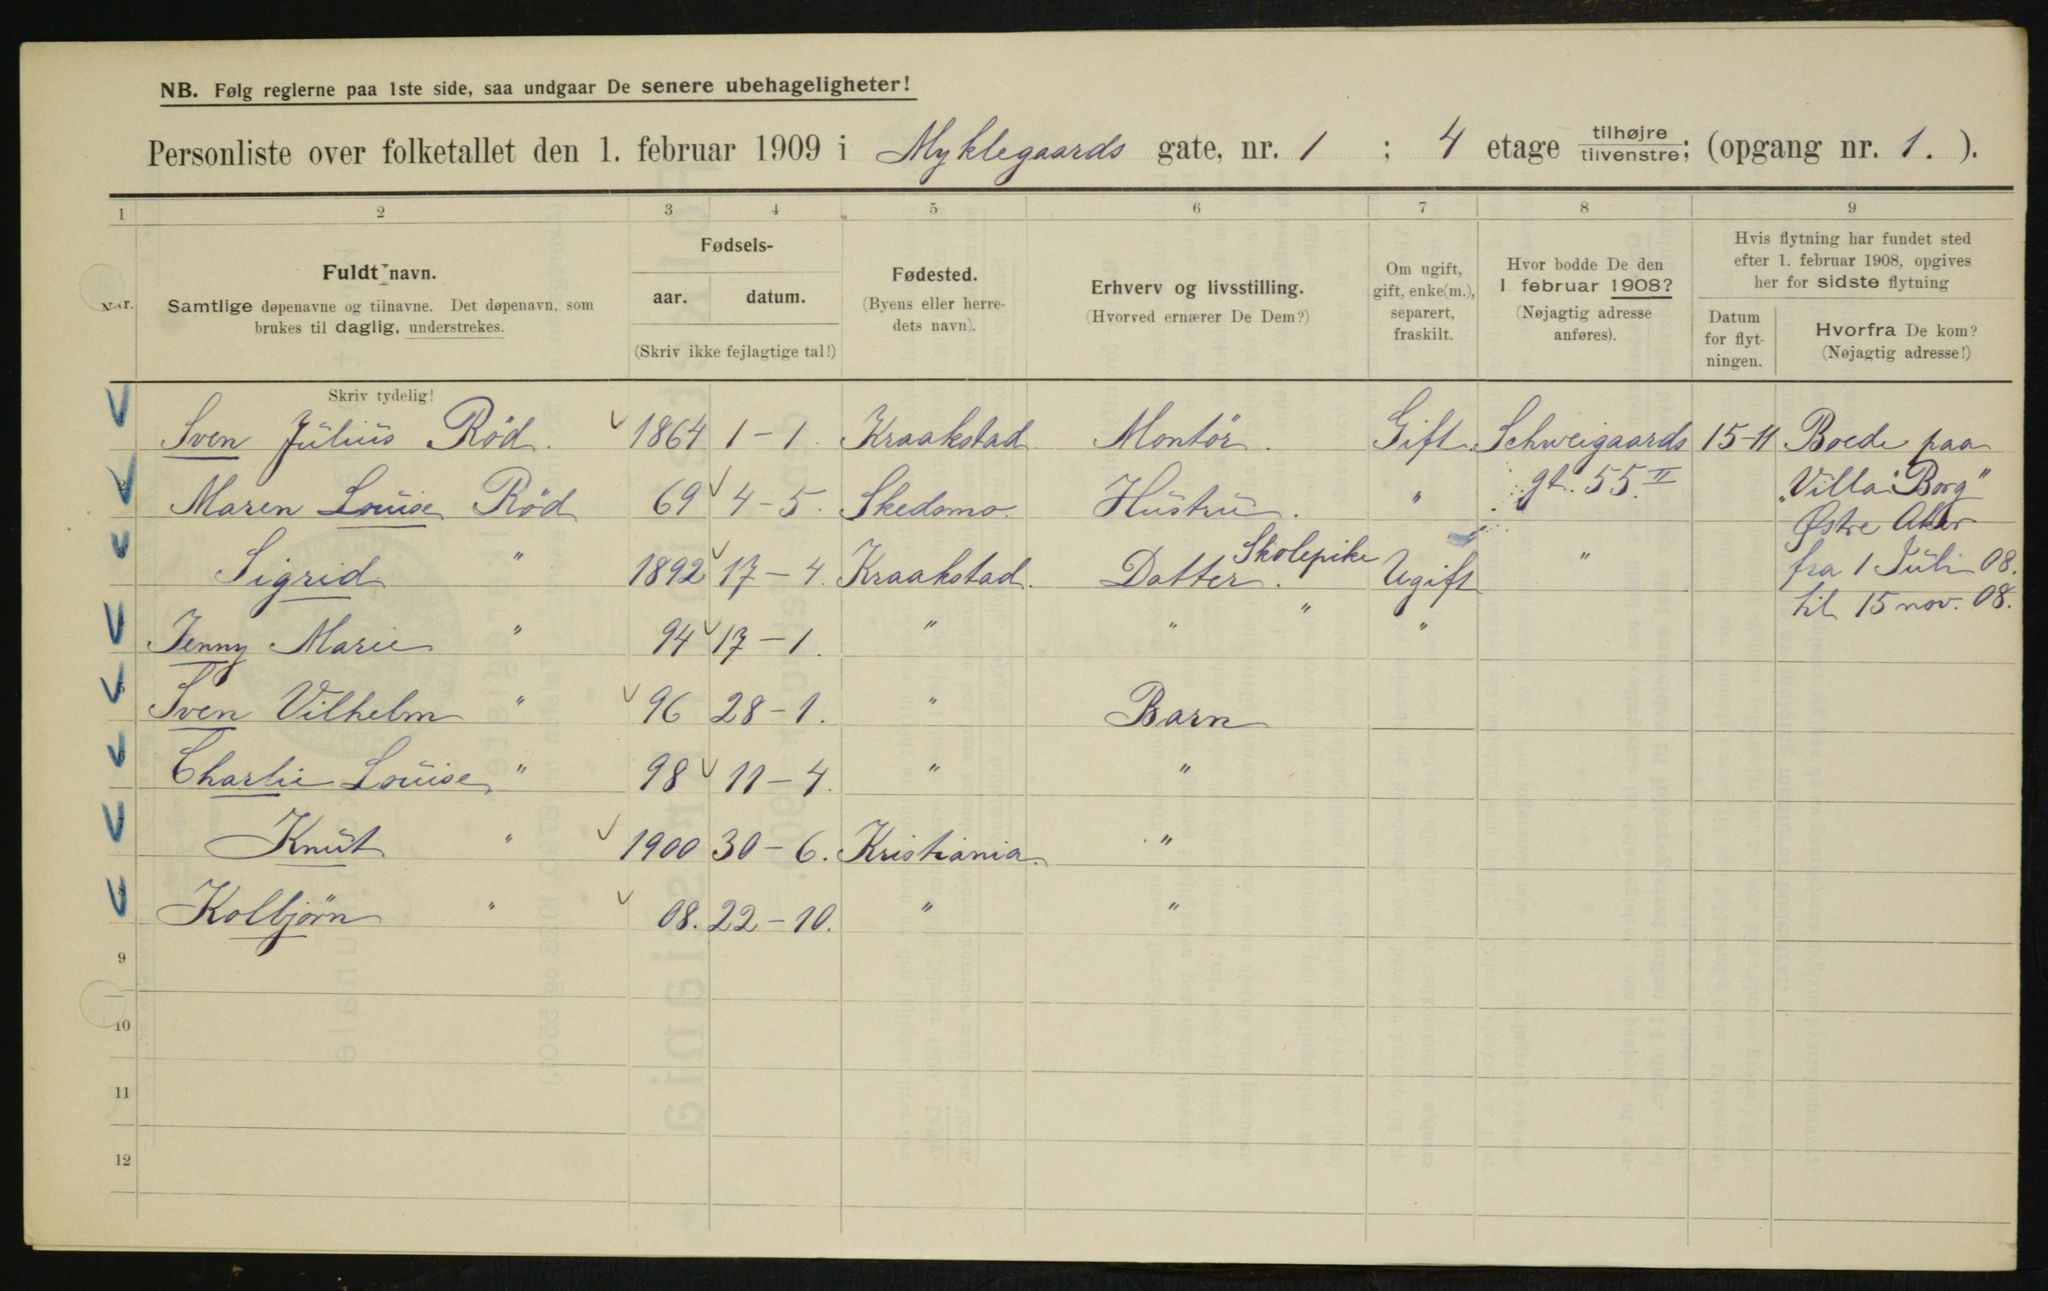 NB. Følg reglerne paa 1ste side, saa undgaar De senere ubehageligheter!
Personliste over folketallet den 1. februar 1909 i Myklegaards gate, nr. 1 ; 4 etage tilhøjre/tilvenstre; (opgang nr. 1. ).
1 2 3 4 5 6 7 8 9
Nr.
Fuldt navn.
Samtlige døpenavne og tilnavne. Det døpenavn, som
brukes til daglig, understrekes.
Skriv tydelig!
Fødsels-
aar. datum.
(Skriv ikke fejlagtige tal!)
Fødested.
(Byens eller herre-
dets navn).
Erhverv og livsstilling.
(Hvorved ernærer De Dem?)
Om ugift,
gift, enke(m.),
separert,
fraskilt.
Hvor bodde De den
1 februar 1908?
(Nøjagtig adresse
anføres).
Hvis flytning har fundet sted
efter 1. februar 1908, opgives
her for sidste flytning
Datum
for flyt-
ningen.
Hvorfra De kom?
(Nøjagtig adresse!)
Sven Julius Röd. 1864 1-1. Kraakstad. Montör. Gift. Schweigaards 15-11 Boede paa
Maren Louise Röd 69 4-5. Skedsmo. Hustru. " gt. 55. II "Villa Borg"
Østre Aker
Sigrid " 1892 17-4. Kraakstad. Datter. Skolepike Ugift " fra 1 Juli 08.
til 15 nov. 08.
Jenny Marie " 94 17-1. " " " "
Sven Vilhelm " 96 28-1. " Barn
Charlie Louise " 98 11-4. " "
Knut " 1900 30-6. Kristiania. "
Kolbjörn " 08. 22-10. " "
9
10
11
12